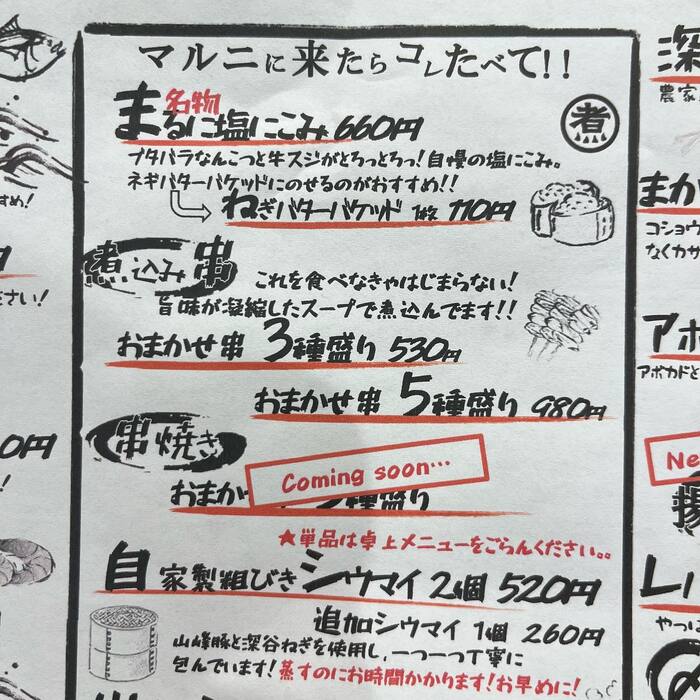 マルニに来たらコレたべて!!
名物
まるに塩にこみ 660円
煮
ブタバラなんこつと牛スジがとろっとろっ!自慢の塩にこみ。
ネギバターバケッドにのせるのがおすすめ!!
ねぎバターバケッド 1枚 110円
煮込み串
これを食べなきゃはじまらない!
旨味が凝縮したスープで煮込んでます!!
おまかせ串 3種盛り 530円
おまかせ串 5種盛り 980円
串焼き
Coming soon…
おまか
種盛り
★単品は卓上メニューをごらんください。。
自家製粗びきシウマイ 2個 520円
追加シウマイ 1個 260円
山峰豚と深谷ねぎを使用し、一つ一つ丁寧に
包んでいます!蒸すのにお時間かかります!お早めに!
すめ!
ださい!
0円
深
農家
まか
コショウ
なくカサ
アボ
アボカドと
Ne
揚
やっぱ